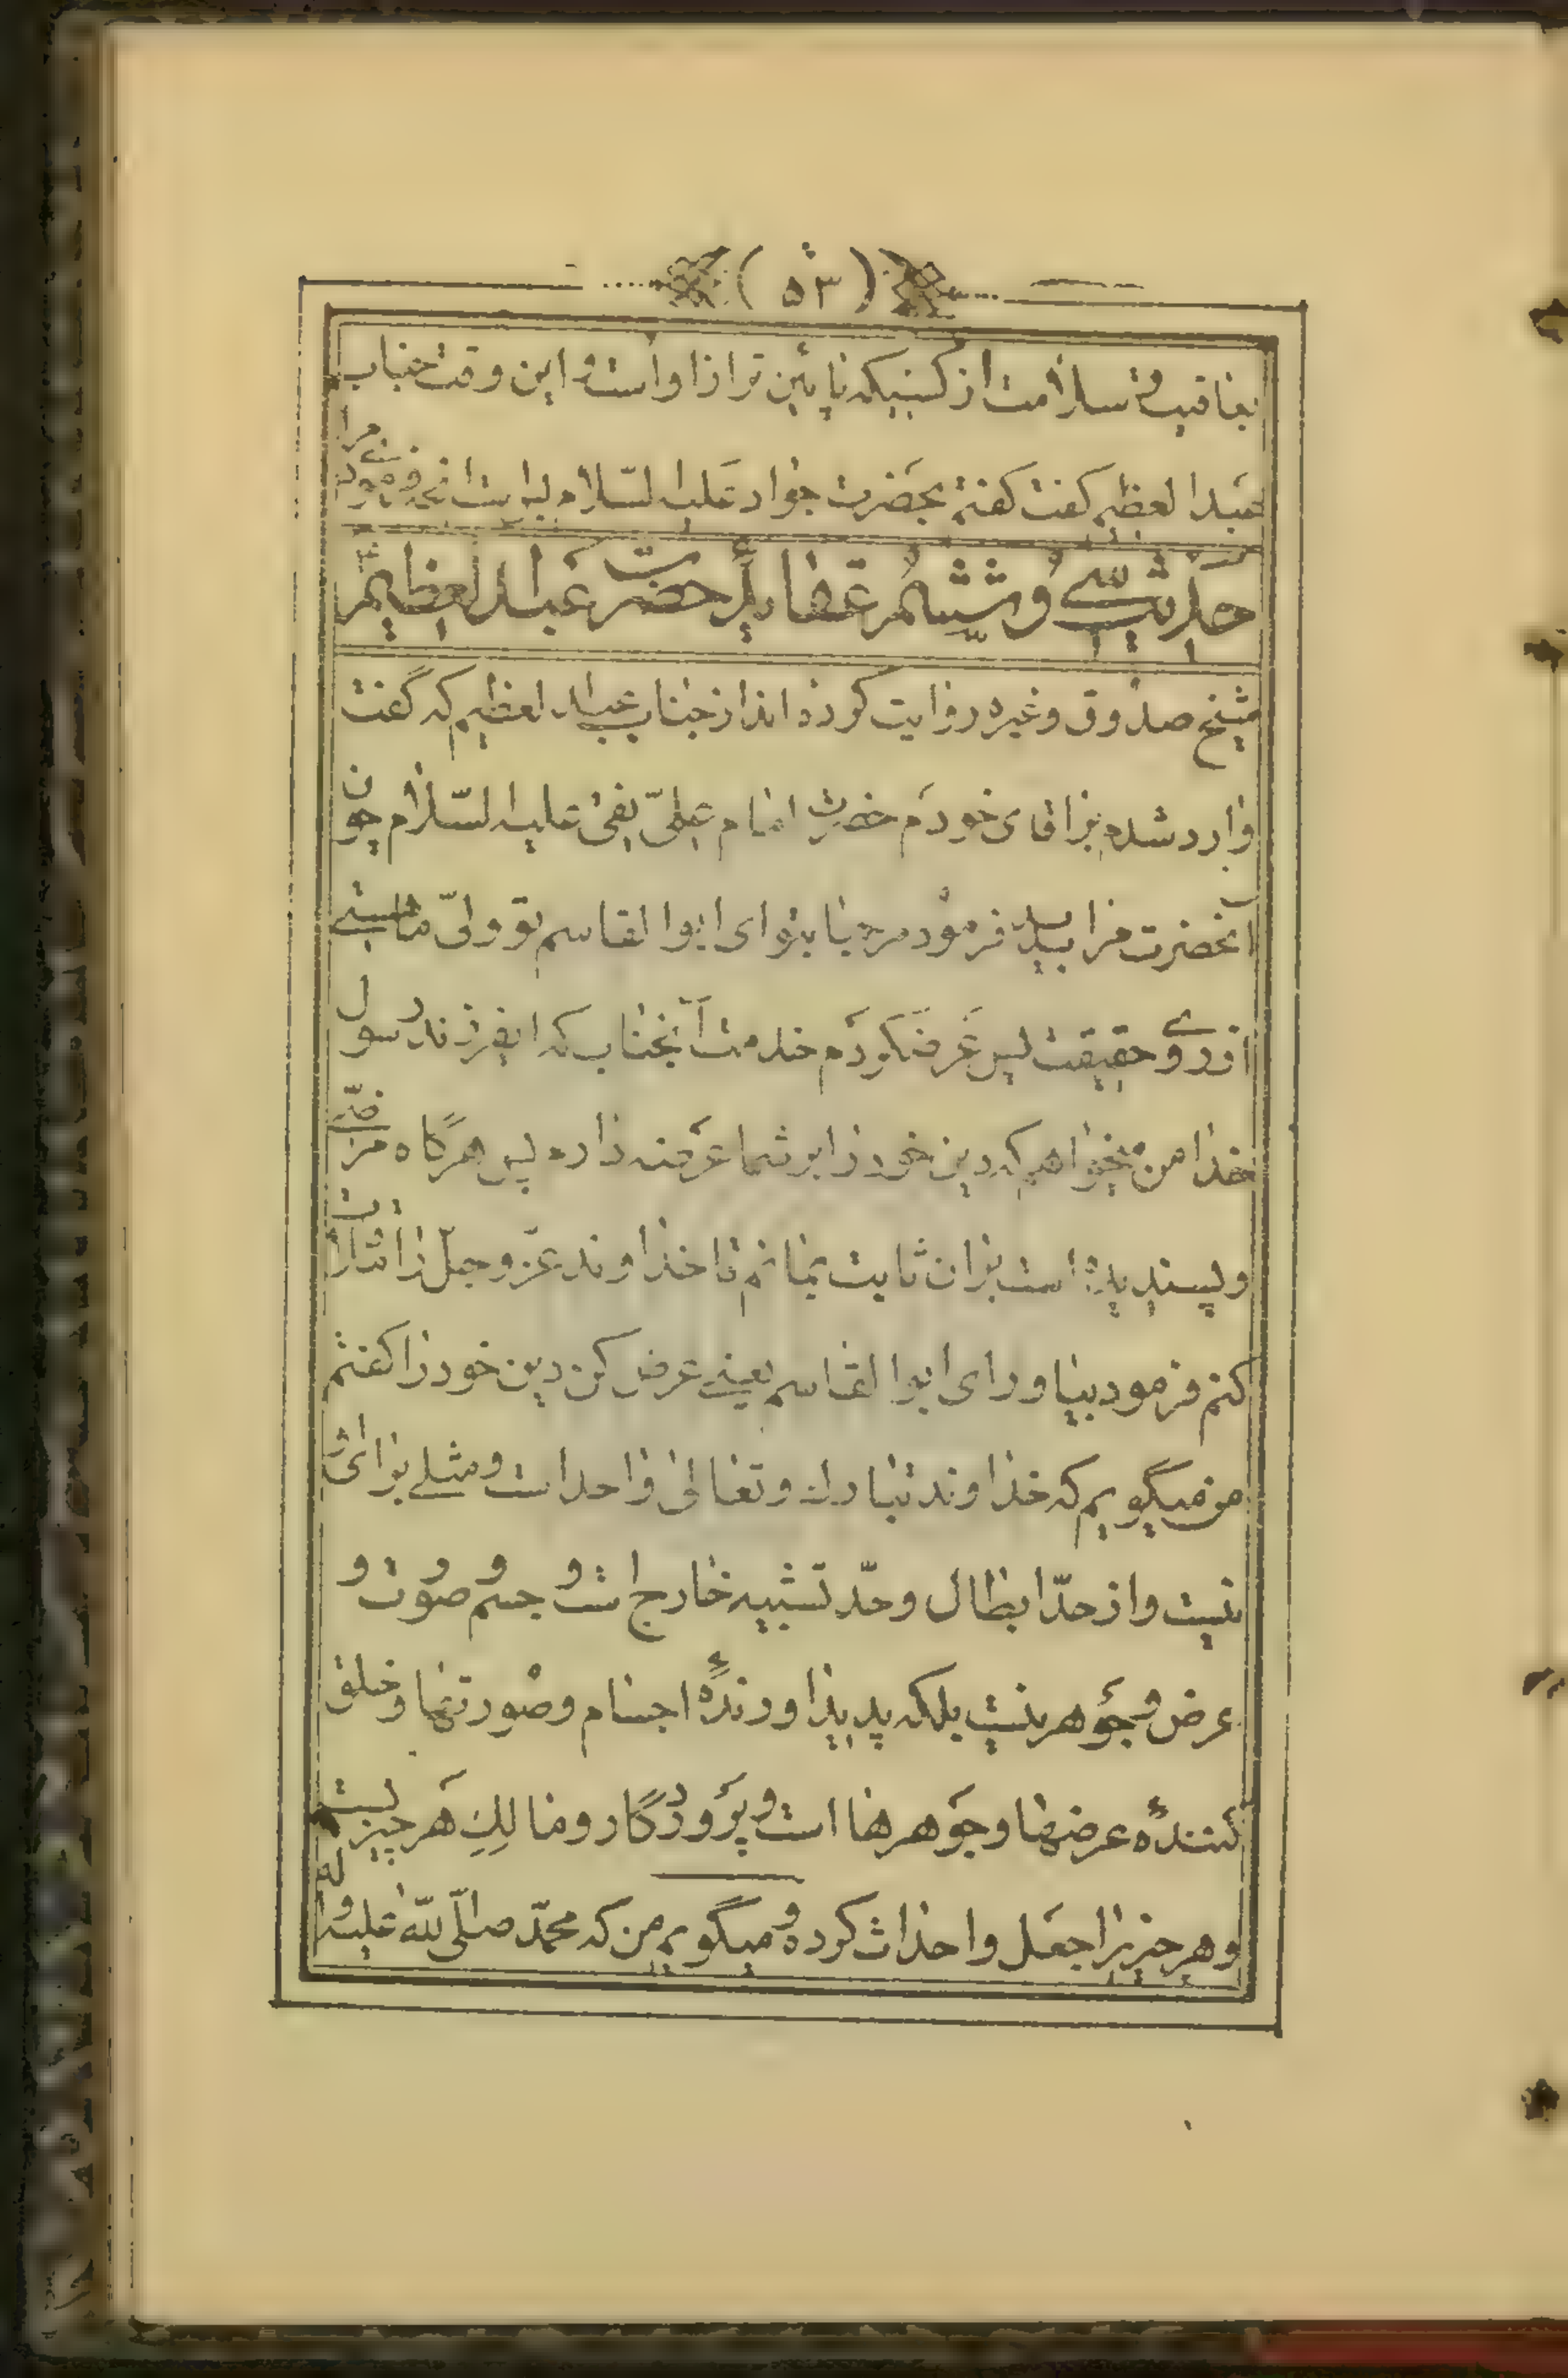 (۵۳)
بعافیت و سلامت از کسیکه پایین تر از او است و این وقت جناب
عبدالعظیم گفت گفتم بحضرت جواد علیه السلام بس است مرا آنچه فرمودی
حدیث سی و ششم عقاید حضرت عبدالعظیم
شیخ صدوق و غیره روایت کرده‌اند از جناب عبدالعظیم که گفت
وارد شدم بر اقای خودم حضرت امام علی نقی علیه السّلام چون
آنحضرت مرا بدید فرمود مرحبا بتو ای ابوالقاسم تو ولیّ ما هستی
از روی حقیقت پس عرضکردم خدمت آنجناب که ایفرزند رسول
خدا من میخواهم که دین خود را بر شما عرضه دارم پس هرگاه مرضیّ
و پسندیده است بر ان ثابت بمانم تا خداوند عزّ و جلّ را ملاقات
کنم فرمود بیاور ای ابوالقاسم یعنی عرض کن دین خود را گفتم
من میگویم که خداوند تبارک و تعالی واحد است و مثلی برایش
نیست و از حدّ ابطال و حدّ تشبیه خارج است و جسم و صورت و
عرض و جوهر نیست بلکه پدیداورندهٔ اجسام و صورتها و خلق
کنندهٔ عرضها و جوهرها است و پروردگار و مالِكِ هر چیزیست
و هر چیزیرا جعل و احداث کرده و میگویم من که محمّد صلّی اللّه علیه و اله